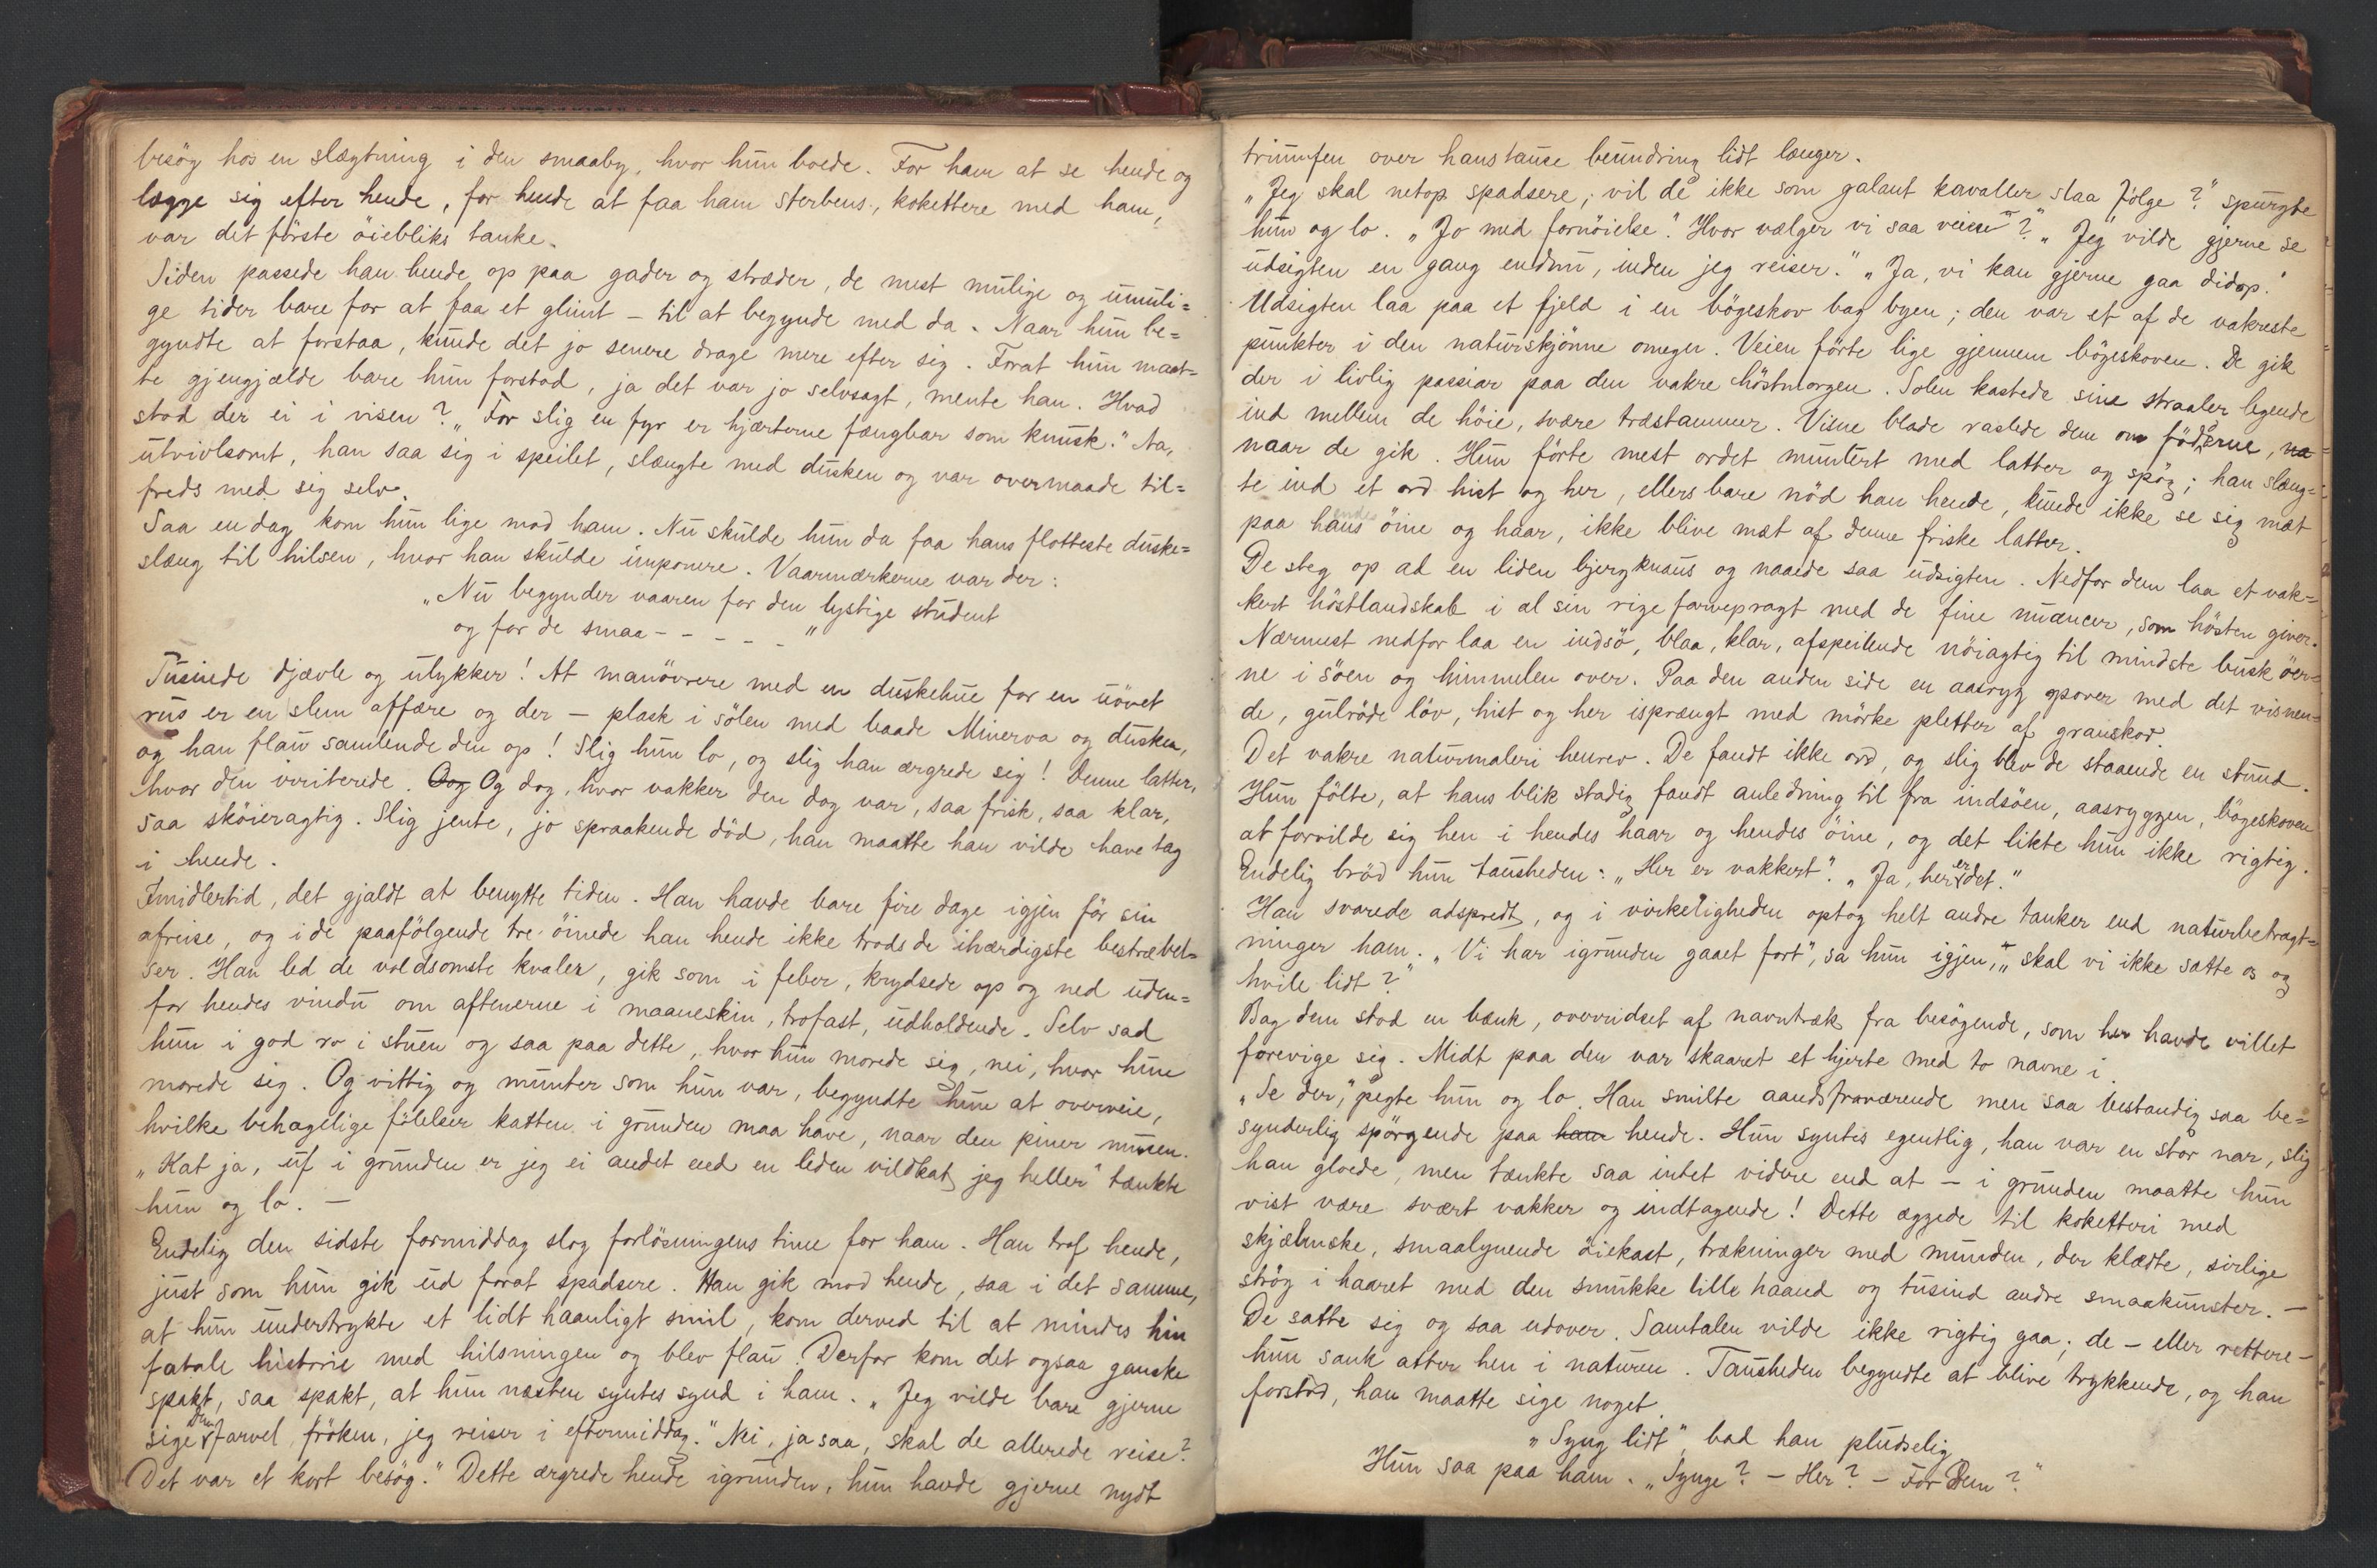 besög hos en slægtning i den smaaby, hvor hun boede. For ham at se hende og
lægge sig efter hende, for hende at faa ham sterbens, kokettere med ham,
var det förste öiebliks tanke.
Siden passede han hende op paa gader og stræder, de mest mulige og umuli=
ge tider bare for at faa et glimt – til at begynde med da. Naar hun be=
gyndte at forstaa, kunde det jo senere drage mere efter sig. Forat hun maat=
te gjengjælde bare hun forstod, ja det var jo selvsagt, mente han. Hvad
stod der ei i visen? „For slig en fyr er hjærterne fængbar som knusk." Na,
utvivlsomt, han saa sig i speilet, slængte med dusken og var overmaade til=
freds med sig selv.
Saa en dag kom hun lige mod ham. Nu skulde hun da faa hans flotteste duske=
slæng til hilsen, hvor han skulde imponere. Vaarmærkerne var der:
„Nu begynder vaaren for den lystige student
og for de smaa - - - - - "
Tusinde djævle og ulykker! At manövrere med en duskehue for en uövet
rus er en slem affære og der – plask i sölen med baade Minerva og dusken,
og han flau samlende den op! Slig hun lo, og slig han ærgrede sig! Denne latter,
hvor den irriterede. Oog Og dog, hvor vakker den dog var, saa frisk, saa klar,
saa sköieragtig. Slig jente, jo spraakende död, han maatte han vilde have tag
i hende.
Imidlertid, det gjaldt at benytte tiden. Han havde bare fire dage igjen för sin
afreise, og i de paafölgende tre öinede han hende ikke trods de ihærdigste bestræbel=
ser. Han led de voldsomste kvaler, gik som i feber, krydsede op og ned uden=
for hendes vindu om aftenerne i maaneskin, trofast, udholdende. Selv sad
hun i god ro i stuen og saa paa dette, hvor hun morede sig, nei, hvor hun
morede sig. Og vittig og munter som hun var, begyndte hun at overveie,
hvilke behagelige fölelser katten i grunden maa have, naar den piner musen.
„Kat ja, uf i grunden er jeg ei andet end en leden vildkat jeg heller" tænkte
hun og lo. –
Endelig den sidste formiddag slog forlösningens time for ham. Han traf hende,
just som hun gik ud forat spadsere. Han gik mod hende, saa i det samme,
at hun undertrykte et lidt haanligt smil, kom derved til at mindes hin
fatale historie med hilsningen og blev flau. Derfor kom det ogsaa ganske
spakt, saa spakt, at hun næsten syntes synd i ham. „Jeg vilde bare gjerne
sige Dem farvel, fröken, jeg reiser i eftermiddag." Nei, ja saa, skal de allerede reise?
Det var et kort besög." Dette ærgrede hende igrunden, hun havde gjerne nydt
triumfen over hans tause beundring lidt længer.
„Jeg skal netop spadsere; vil de ikke som galant kavaller slaa fölge?" spurgte
hun og lo. „Jo med fornöielse". Hvor vælger vi saa veien?" „Jeg vilde gjerne se
udsigten en gang endnu, inden jeg reiser." „Ja, vi kan gjerne gaa didop."
Udsigten laa paa et fjeld i en bögeskov bag byen; den var et af de vakreste
punkter i den naturskjönne omegn. Veien förte lige gjennem bögeskoven. De gik
der i livlig passiar paa den vakre höstmorgen. Solen kastede sine straaler legende
ind mellem de höie, svære træstammer. Visne blade raslede dem om födderne, na
naar de gik. Hun förte mest ordet muntert med latter og spög; han slæng=
te ind et ord hist og her, ellers bare nöd han hende, kunde ikke se sig mæt
paa hans endes öine og haar, ikke blive mæt af denne friske latter.
De steg op ad en liden bjergknaus og naaede saa udsigten. Nedfor dem laa et vak=
kert höstlandskab i al sin rige farvepragt med de fine nuancer, som hösten giver.
Nærmest nedfor laa en indsö, blaa, klar, afspeilende nöiagtig til mindste busk öer=
ne i söen og himmelen over. Paa den anden side en aasryg opover med det visnen=
de, gulröde löv, hist og her isprængt med mörke pletter af granskov.
Det vakre naturmaleri henrev. De fandt ikke ord, og slig blev de staaende en stund.
Hun fölte, at hans blik stadig fandt anledning til fra indsöen, aasryggen, bögeskoven
at forvilde sig hen i hendes haar og hendes öine, og det likte hun ikke rigtig.
Endelig bröd hun tausheden: „Her er vakkert". „Ja, her er det."
Han svarede adspredt, og i virkeligheden optog helt andre tanker end naturbetragt=
ninger ham. „Vi har igrunden gaaet fort", sa hun igjen, „skal vi ikke sætte os og
hvile lidt?"
Bag dem stod en bænk, overridset af navntræk fra besögende, som her havde villet
forevige sig. Midt paa den var skaaret et hjerte med to navne i.
„Se der," pegte hun og lo. Han smilte aandsfraværende men saa bestandig saa be=
synderlig spörgende paa ham hende. Hun syntes egentlig, han var en stor nar, slig
han gloede, men tænkte saa intet videre end at – i grunden maatte hun
vist være svært vakker og indtagende! Dette æggede til koketteri med
skjælmske, smaalynende öiekast, trækninger med munden, der klædte, sirlige
strög i haaret med den smukke lille haand og tusind andre smaakunster. –
De satte sig og saa udover. Samtalen vilde ikke rigtig gaa; de – eller rettere –
hun sank atter hen i naturen. Tausheden begyndte at blive trykkende, og han
forstod, han maatte sige noget.
„Syng lidt", bad han pludselig
Hun saa paa ham. „Synge? – Her? – For Dem?"